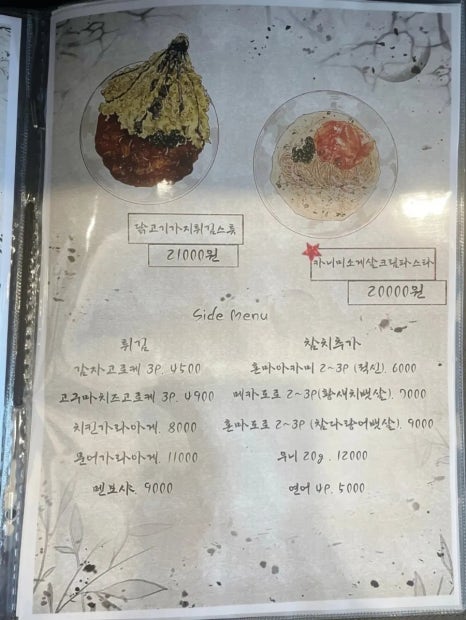 닭고기가지튀김스튜
21000원
카니미소게살크림파스타
20000원
Side Menu
튀김
감자고로케 3P. 4500
고구마치즈고로케 3P. 4900
치킨가라아게. 8000
문어가라아게. 11000
멘보샤. 9000
참치추가
혼마아카미 2~3P (적신). 6000
메카도로 2~3P(황새치뱃살). 7000
혼마도로 2~3P (참다랑어뱃살). 9000
우니 20g. 12000
연어 4P. 5000